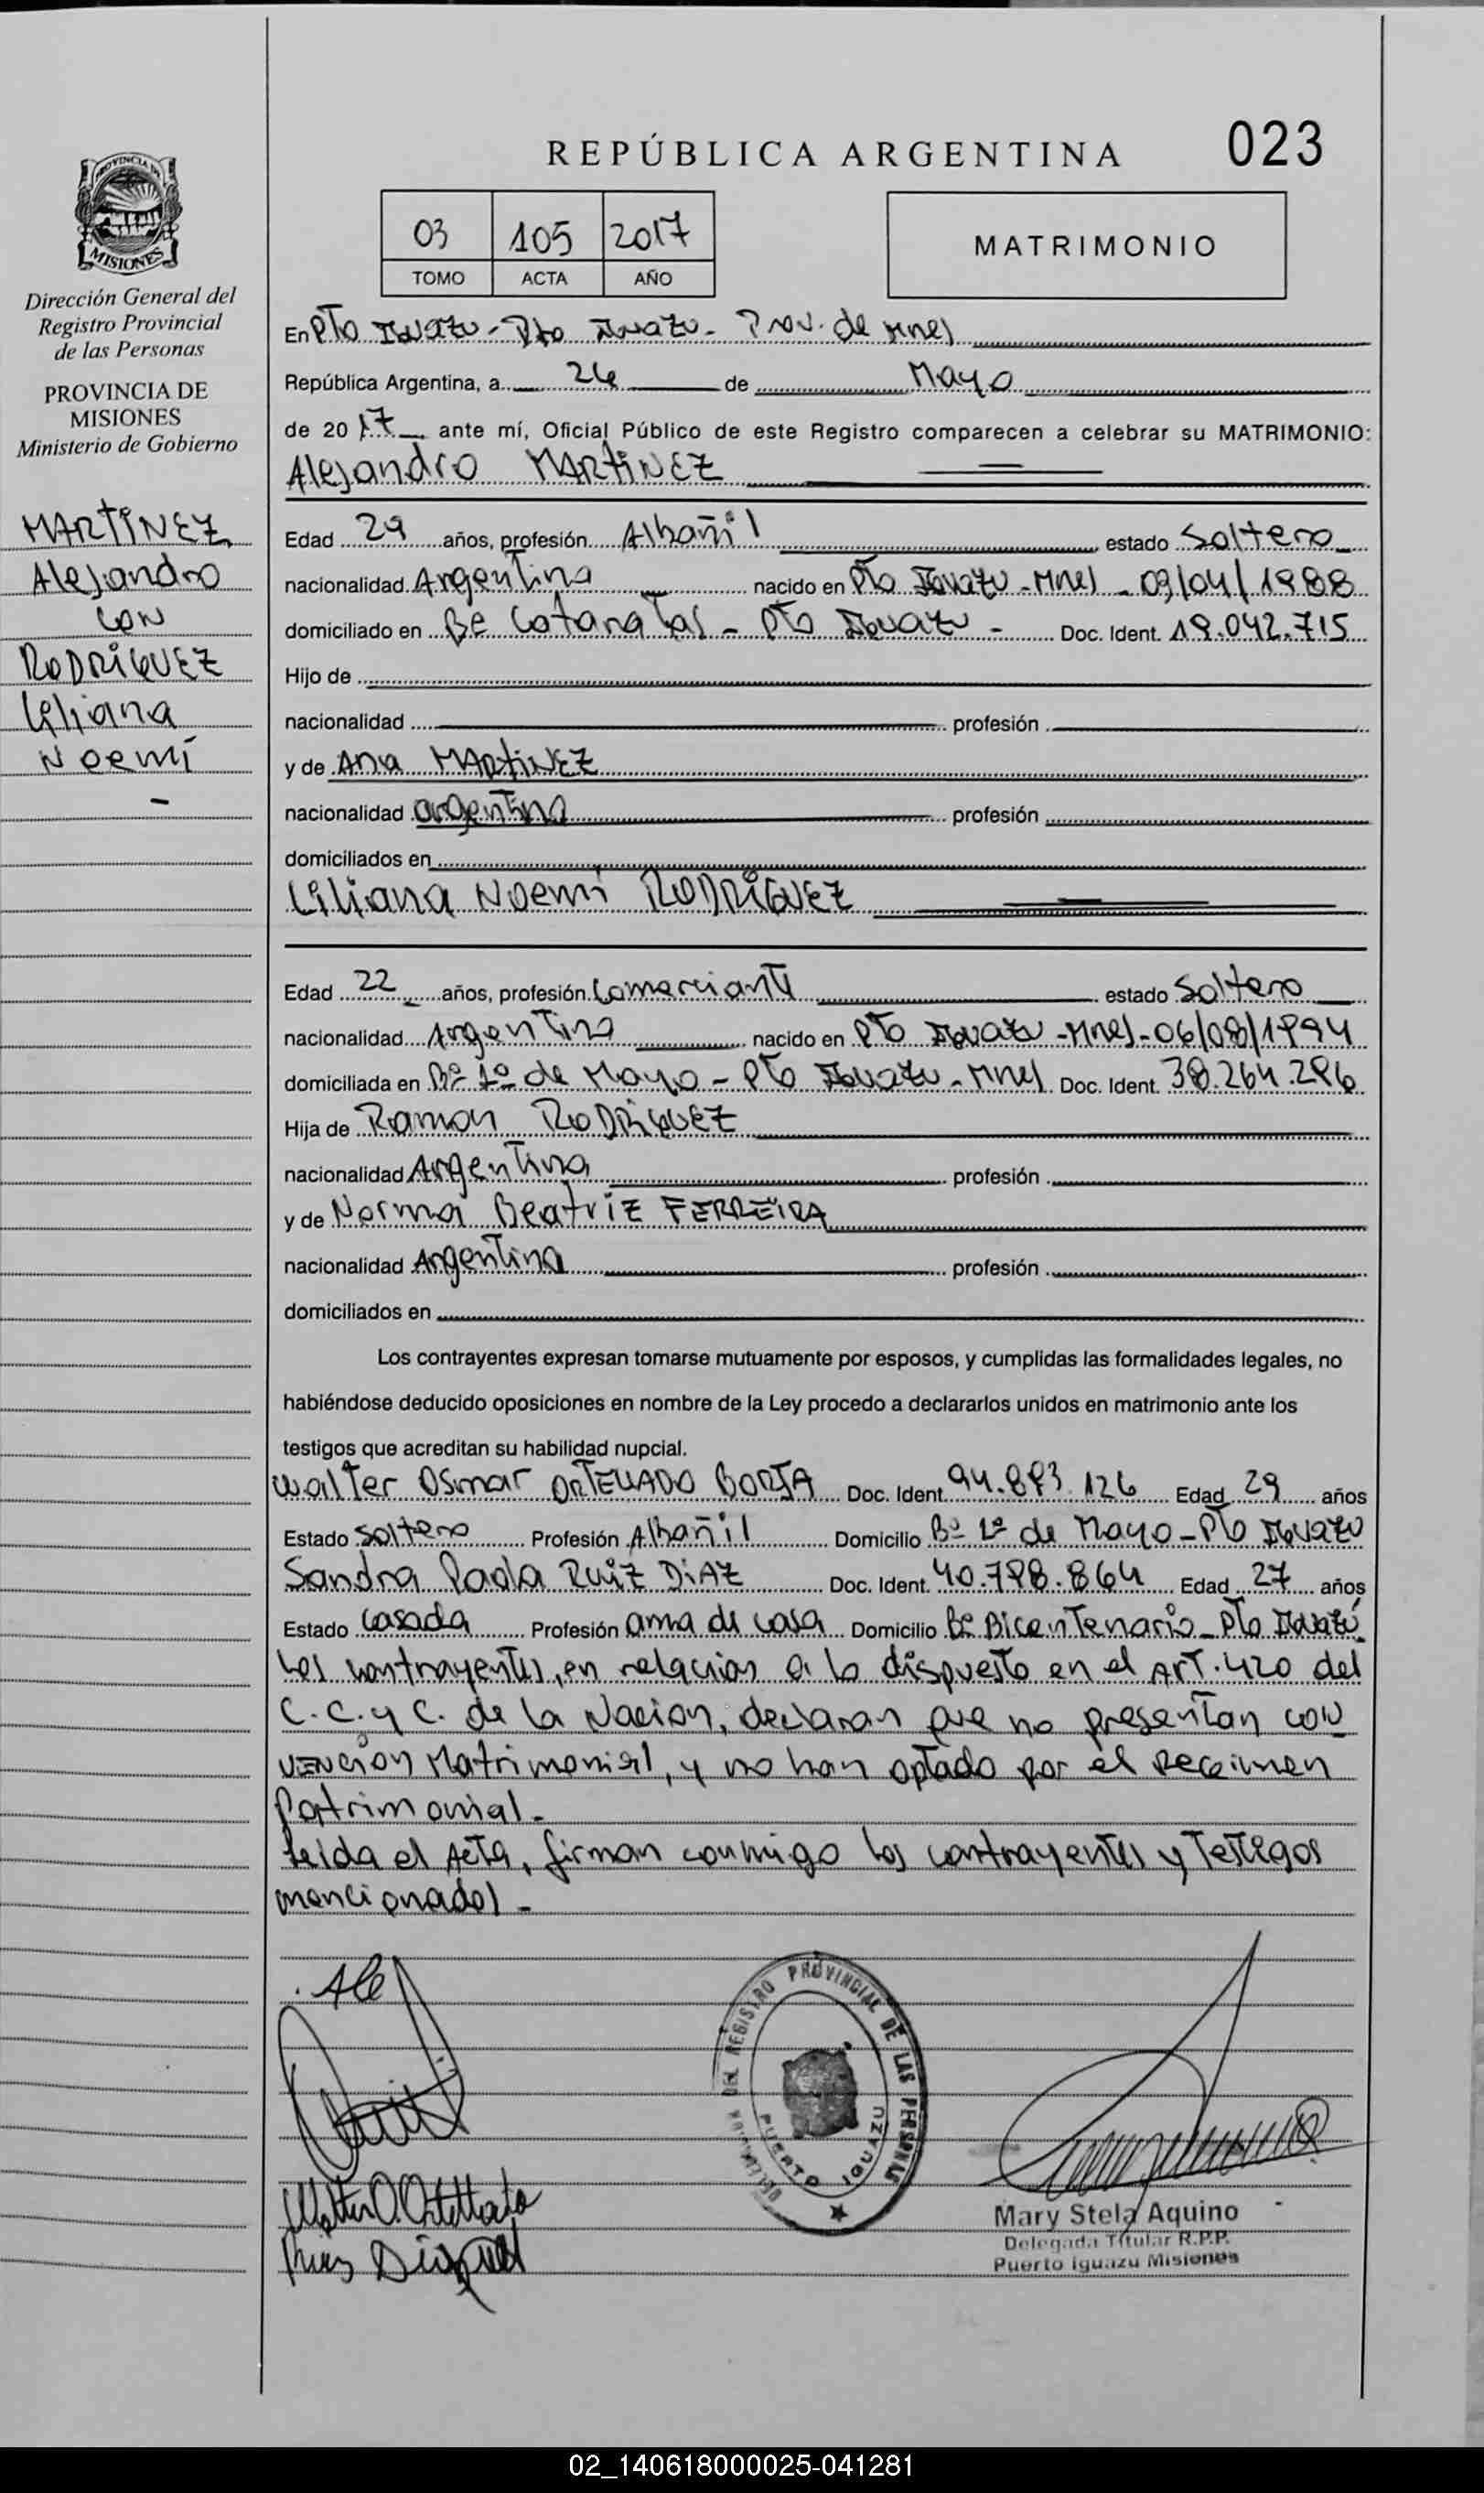 REPÚBLICA ARGENTINA
023
PROVINCIA DE
MISIONES
03 105 2017
TOMO ACTA AÑO
MATRIMONIO
Dirección General del
Registro Provincial
de las Personas
PROVINCIA DE
MISIONES
Ministerio de Gobierno
MARTINEZ
Alejandro
con
RODRIGUEZ
Liliana
Noemí
-
En Pto Iguazu - Pto Iguazu - Prov. de Mnes
República Argentina, a 26 de Mayo
de 2017, ante mí, Oficial Público de este Registro comparecen a celebrar su MATRIMONIO:
Alejandro MARTINEZ
Edad 29 años, profesión Albañil estado Soltero
nacionalidad Argentina nacido en Pto Iguazu - Mnes - 09/04/1988
domiciliado en Bº Cataratas - Pto Iguazu - Doc. Ident. 19.042.715
Hijo de
nacionalidad profesión
y de Ana MARTINEZ
nacionalidad argentina profesión
domiciliados en
Liliana Noemí RODRIGUEZ
Edad 22 años, profesión Comerciante estado Soltero
nacionalidad Argentina nacido en Pto Iguazu - Mnes - 06/08/1994
domiciliada en Bº 1º de Mayo - Pto Iguazu - Mnes Doc. Ident. 38.264.286
Hija de Ramon RODRIGUEZ
nacionalidad Argentina profesión
y de Norma Beatriz FERREIRA
nacionalidad Argentina profesión
domiciliados en
Los contrayentes expresan tomarse mutuamente por esposos, y cumplidas las formalidades legales, no
habiéndose deducido oposiciones en nombre de la Ley procedo a declararlos unidos en matrimonio ante los
testigos que acreditan su habilidad nupcial.
Walter Osmar ORTELLADO BORJA Doc. Ident. 94.883.126 Edad 29 años
Estado Soltero Profesión Albañil Domicilio Bº 1º de Mayo - Pto Iguazu
Sandra Paola RUIZ DIAZ Doc. Ident. 40.798.864 Edad 27 años
Estado Casada Profesión ama de casa Domicilio Bº Bicentenario - Pto Iguazú
Los contrayentes, en relacion a lo dispuesto en el ART. 420 del
C.C. y C. de la Nacion, declaran que no presentan con
vencion Matrimonial, y no han optado por el Regimen
Patrimonial.-
Leida el Acta, firman conmigo los contrayentes y Testigos
mencionados -
Ale
Walter O. Ortellado
DEL REGISTRO PROVINCIAL DE LAS PERSONAS
PUERTO IGUAZU
Mary Stela Aquino
Delegada Titular R.P.P.
Puerto Iguazu Misiones
02_140618000025-041281